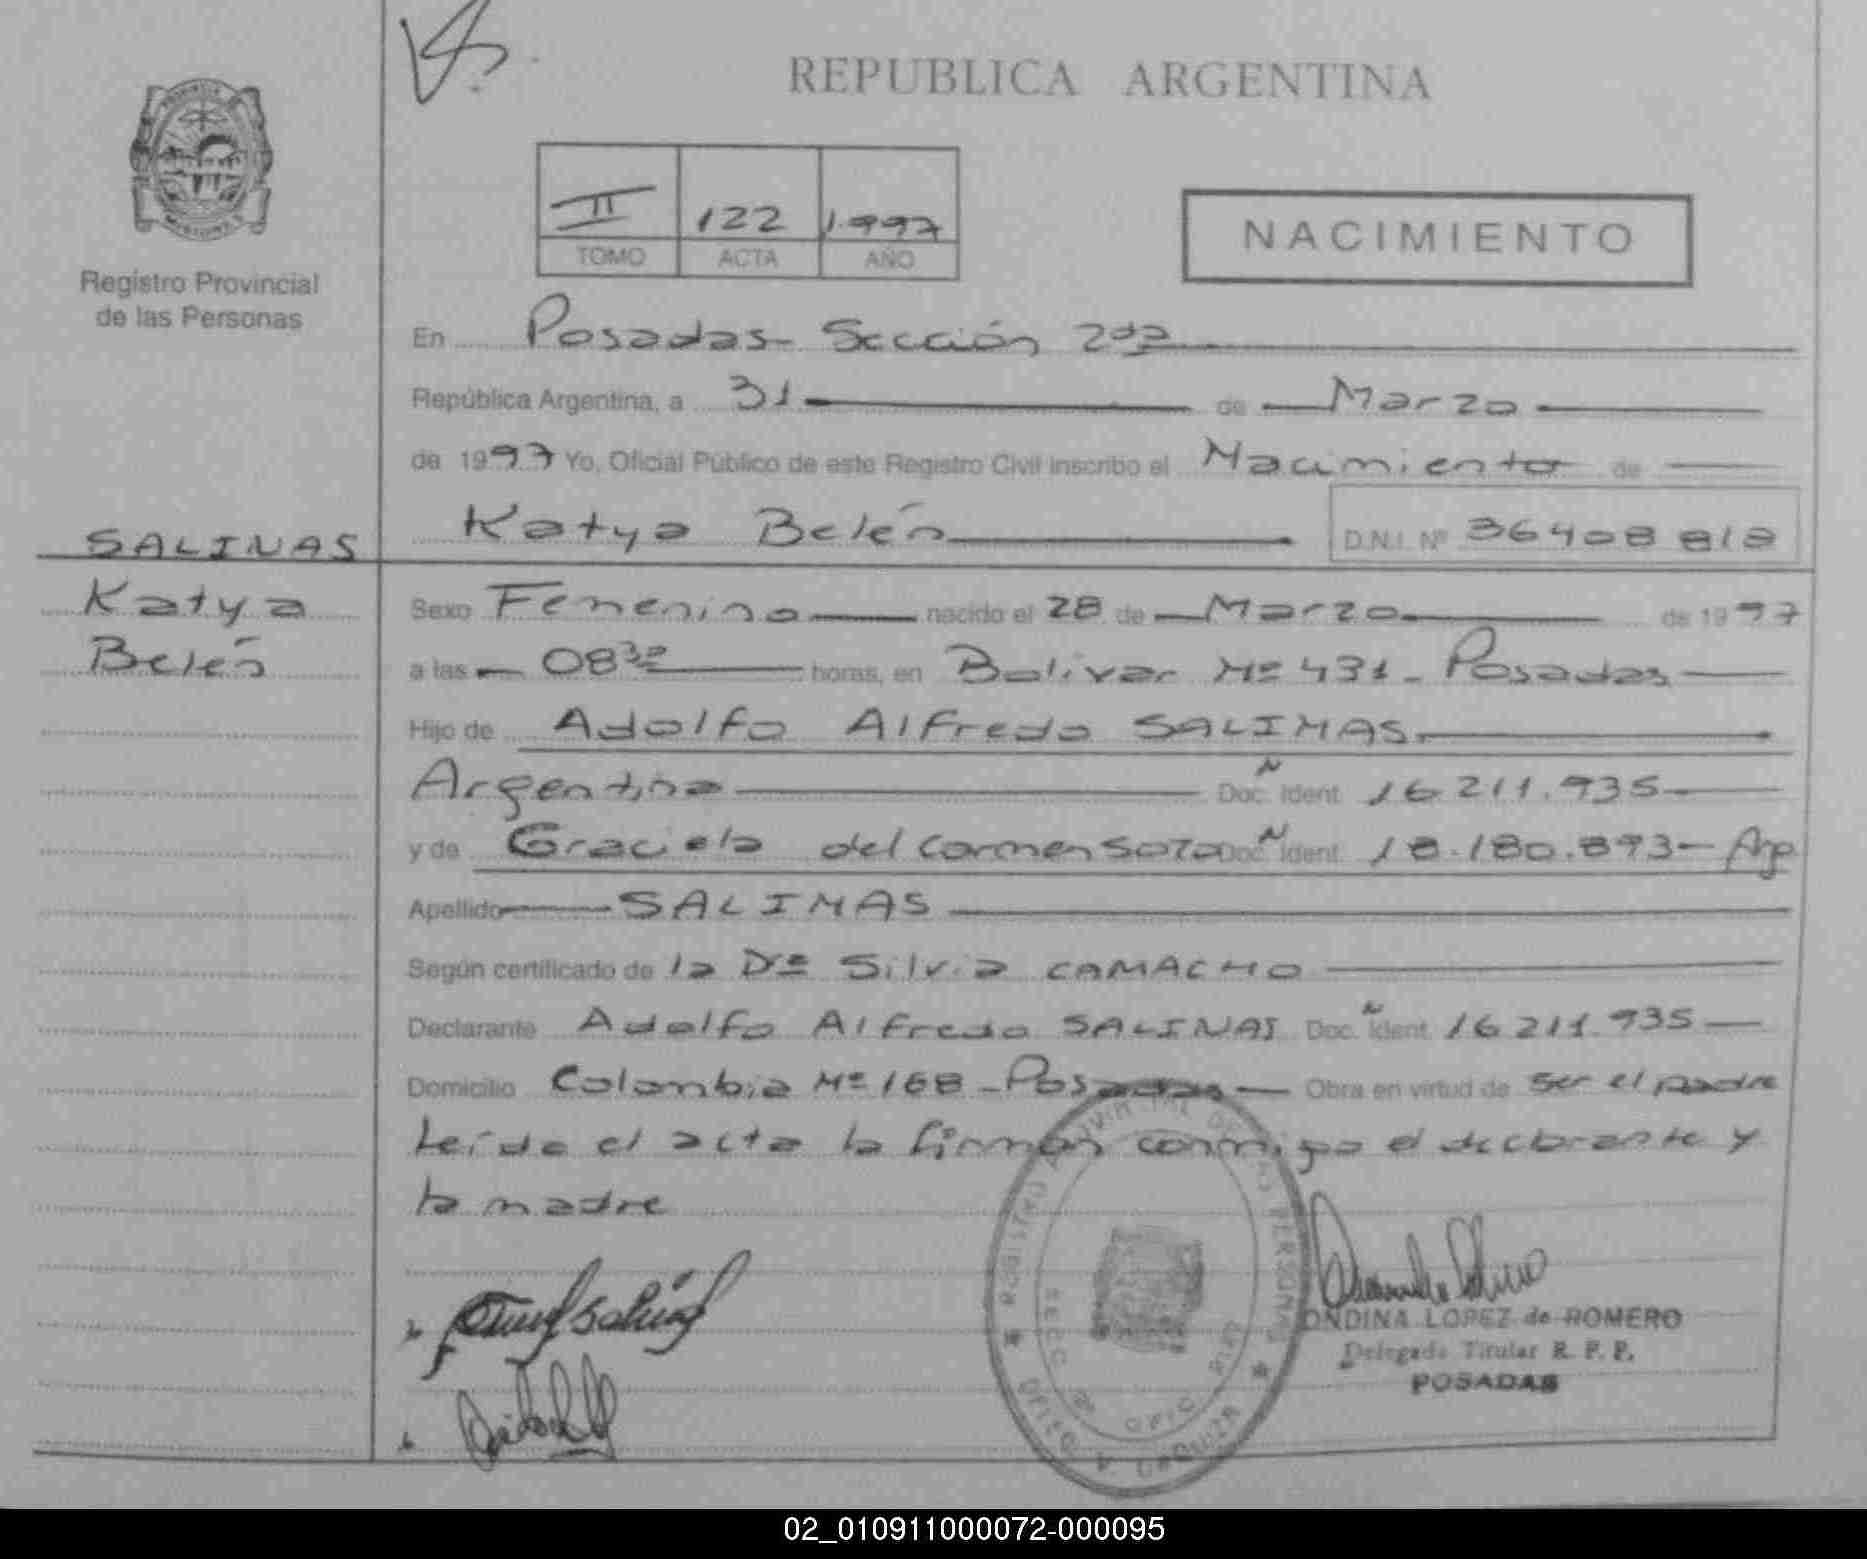 REPUBLICA ARGENTINA
II 122 1.997
TOMO ACTA AÑO
NACIMIENTO
Registro Provincial
de las Personas
En Posadas - Sección 2da
República Argentina, a 31 de Marzo
de 1997 Yo, Oficial Público de este Registro Civil inscribo el Nacimiento de
Katya Belén D.N.I. Nº
SALINAS
Katya
Belén
Sexo Femenino nacido el 28 de Marzo de 1997
a las 08 30 horas, en Bolívar Nº 431 - Posadas
Hijo de Adolfo Alfredo SALINAS
Argentina Doc. Ident. 16.211.935
y de Graciela del Carmen Soto Doc. Ident. 18.180.893 - Arg
Apellido SALINAS
Según certificado de la Dra Silvia CAMACHO
Declarante Adolfo Alfredo SALINAS Doc. Ident. 16.211.935
Domicilio Colombia Nº 168 - Posadas Obra en virtud de ser el padre
Leída el acta la firman conmigo el declarante y
la madre
ONDINA LOPEZ de ROMERO
Delegado Titular R. P. P.
POSADAS
02_010911000072-000095